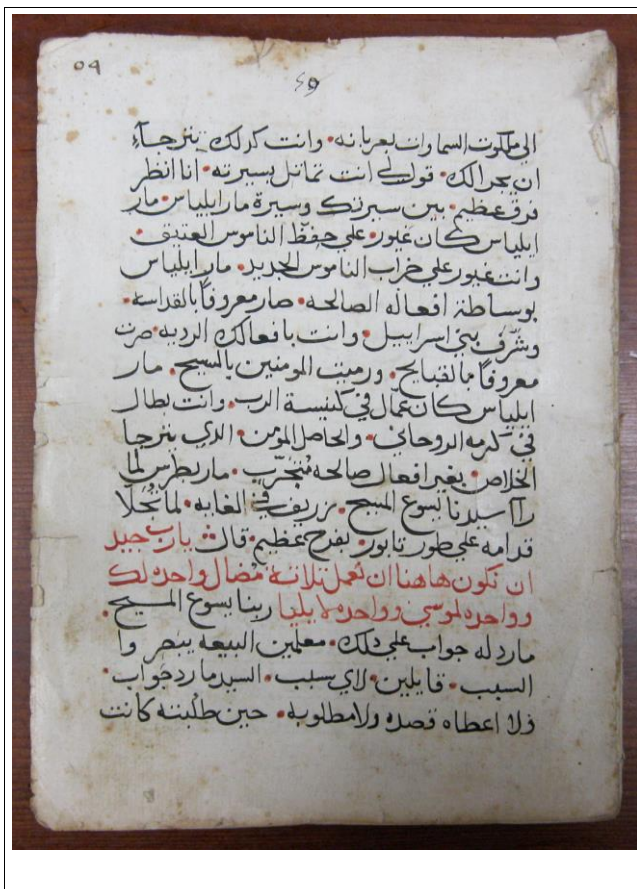 ٥٩
٥٩
الي ملكوت السماوات بعربانه • وانت كدلك يترجاء
ان يجرالك • قولي انت تماتل بسيرته • انا انظر
فرق عظيم • بين سيرتك وسيرة مار ايلياس • مار
ايلياس كان غيور • علي حفظ الناموس العتيق •
وانت غيور علي خراب الناموس الجديد • مار ايلياس
بوساطة افعاله الصالحه • صار معروفاً بالقداسه •
وشرّف بني اسراييل • وانت بافعالك الرديه • صرت
معروفاً بالقبايح • ورميت المومنين بالسبح • مار
ايلياس كان عمال في كنيسة الرب • وانت بطال
في كرمه الروحاني • والحاصل المؤمن • الدي يترجا
الخلاص • بغير افعال صالحه متجرب • مار بطرس لما
راا سيدنا يسوع المسيح • في الغايه • لما تجلا
قدامه علي طور تابور • بفرح عظيم • قال يارب جيد
ان نكون هاهنا ان نعمل تلاتة مضال واحده لك
وواحده لموسي وواحده لايليا ربنا يسوع المسيح •
مارد له جواب علي دلك • معلمين البيعه يبتجر وا
السبب • قايلين • لاي سبب • السيد مارد جواب •
ولا اعطاه قصده ولا مطلوبه • حين طلبته كانت